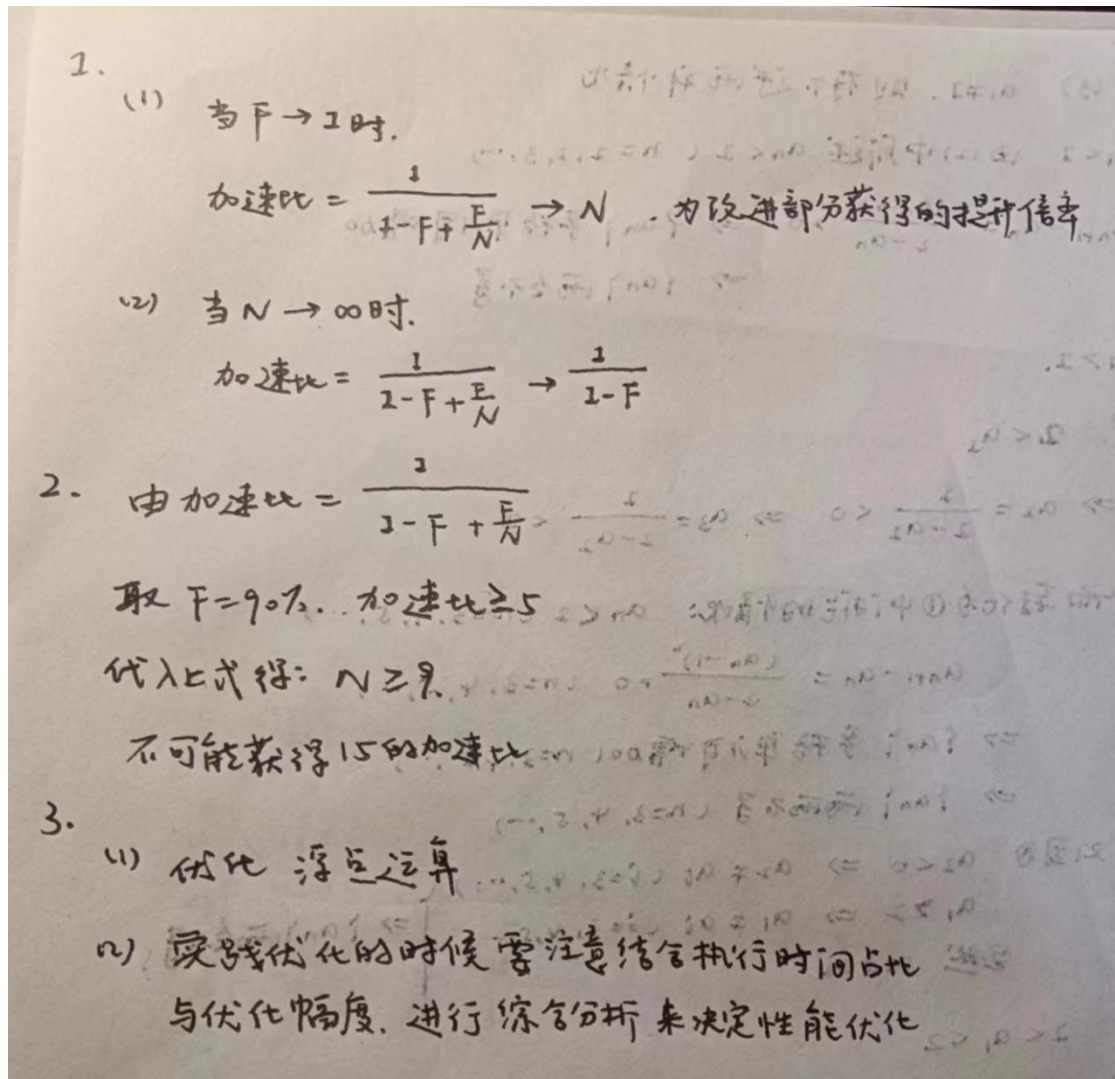 1.
(1) 当 F → 1 时.
加速比 = \frac{1}{1-F+\frac{F}{N}} → N . 为改进部分获得的提升倍率
(2) 当 N → ∞ 时.
加速比 = \frac{1}{1-F+\frac{F}{N}} → \frac{1}{1-F}
2. 由加速比 = \frac{1}{1-F+\frac{F}{N}}
取 F=90%. 加速比≥5
代入上式得: N ≥ 9.
不可能获得15的加速比
3.
(1) 优化 浮点运算
(2) 实践优化的时候要注意结合执行时间占比
与优化幅度. 进行综合分析来决定性能优化